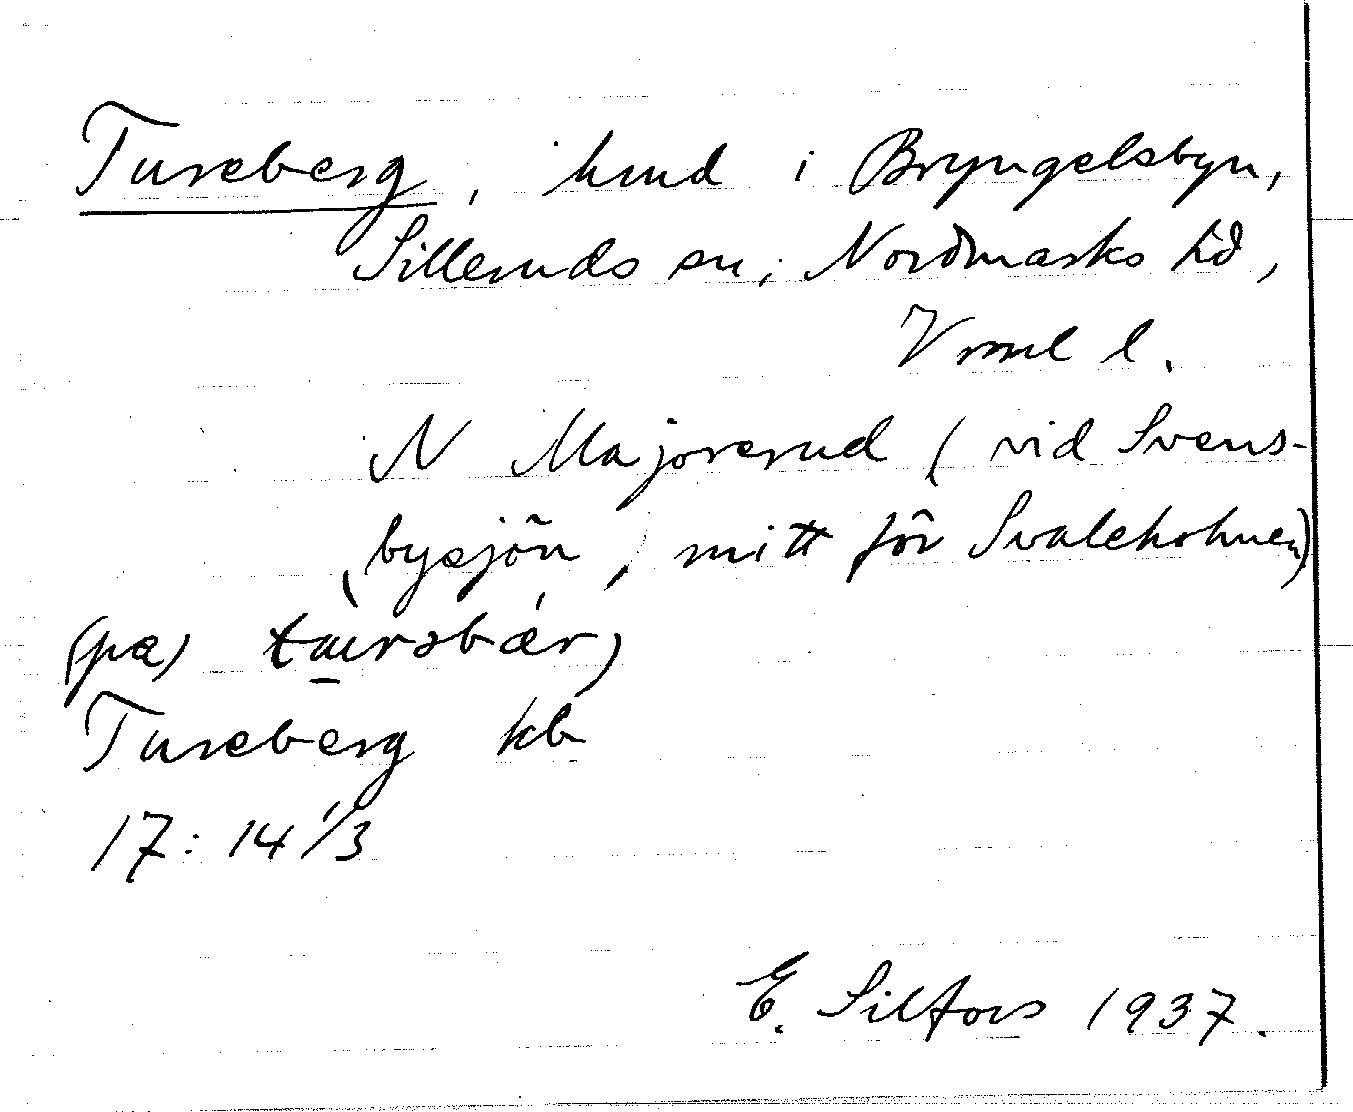 Tureberg, hmd i Bryngelsbyn,
Silleruds sn, Nordmarks hd,
Vrml l.
N Majorerud (vid Svens-
bysjön, mitt för Svaleholmen)
(pæ)
Tureberg kb
17: 14 1/3
E. Silfors 1937.